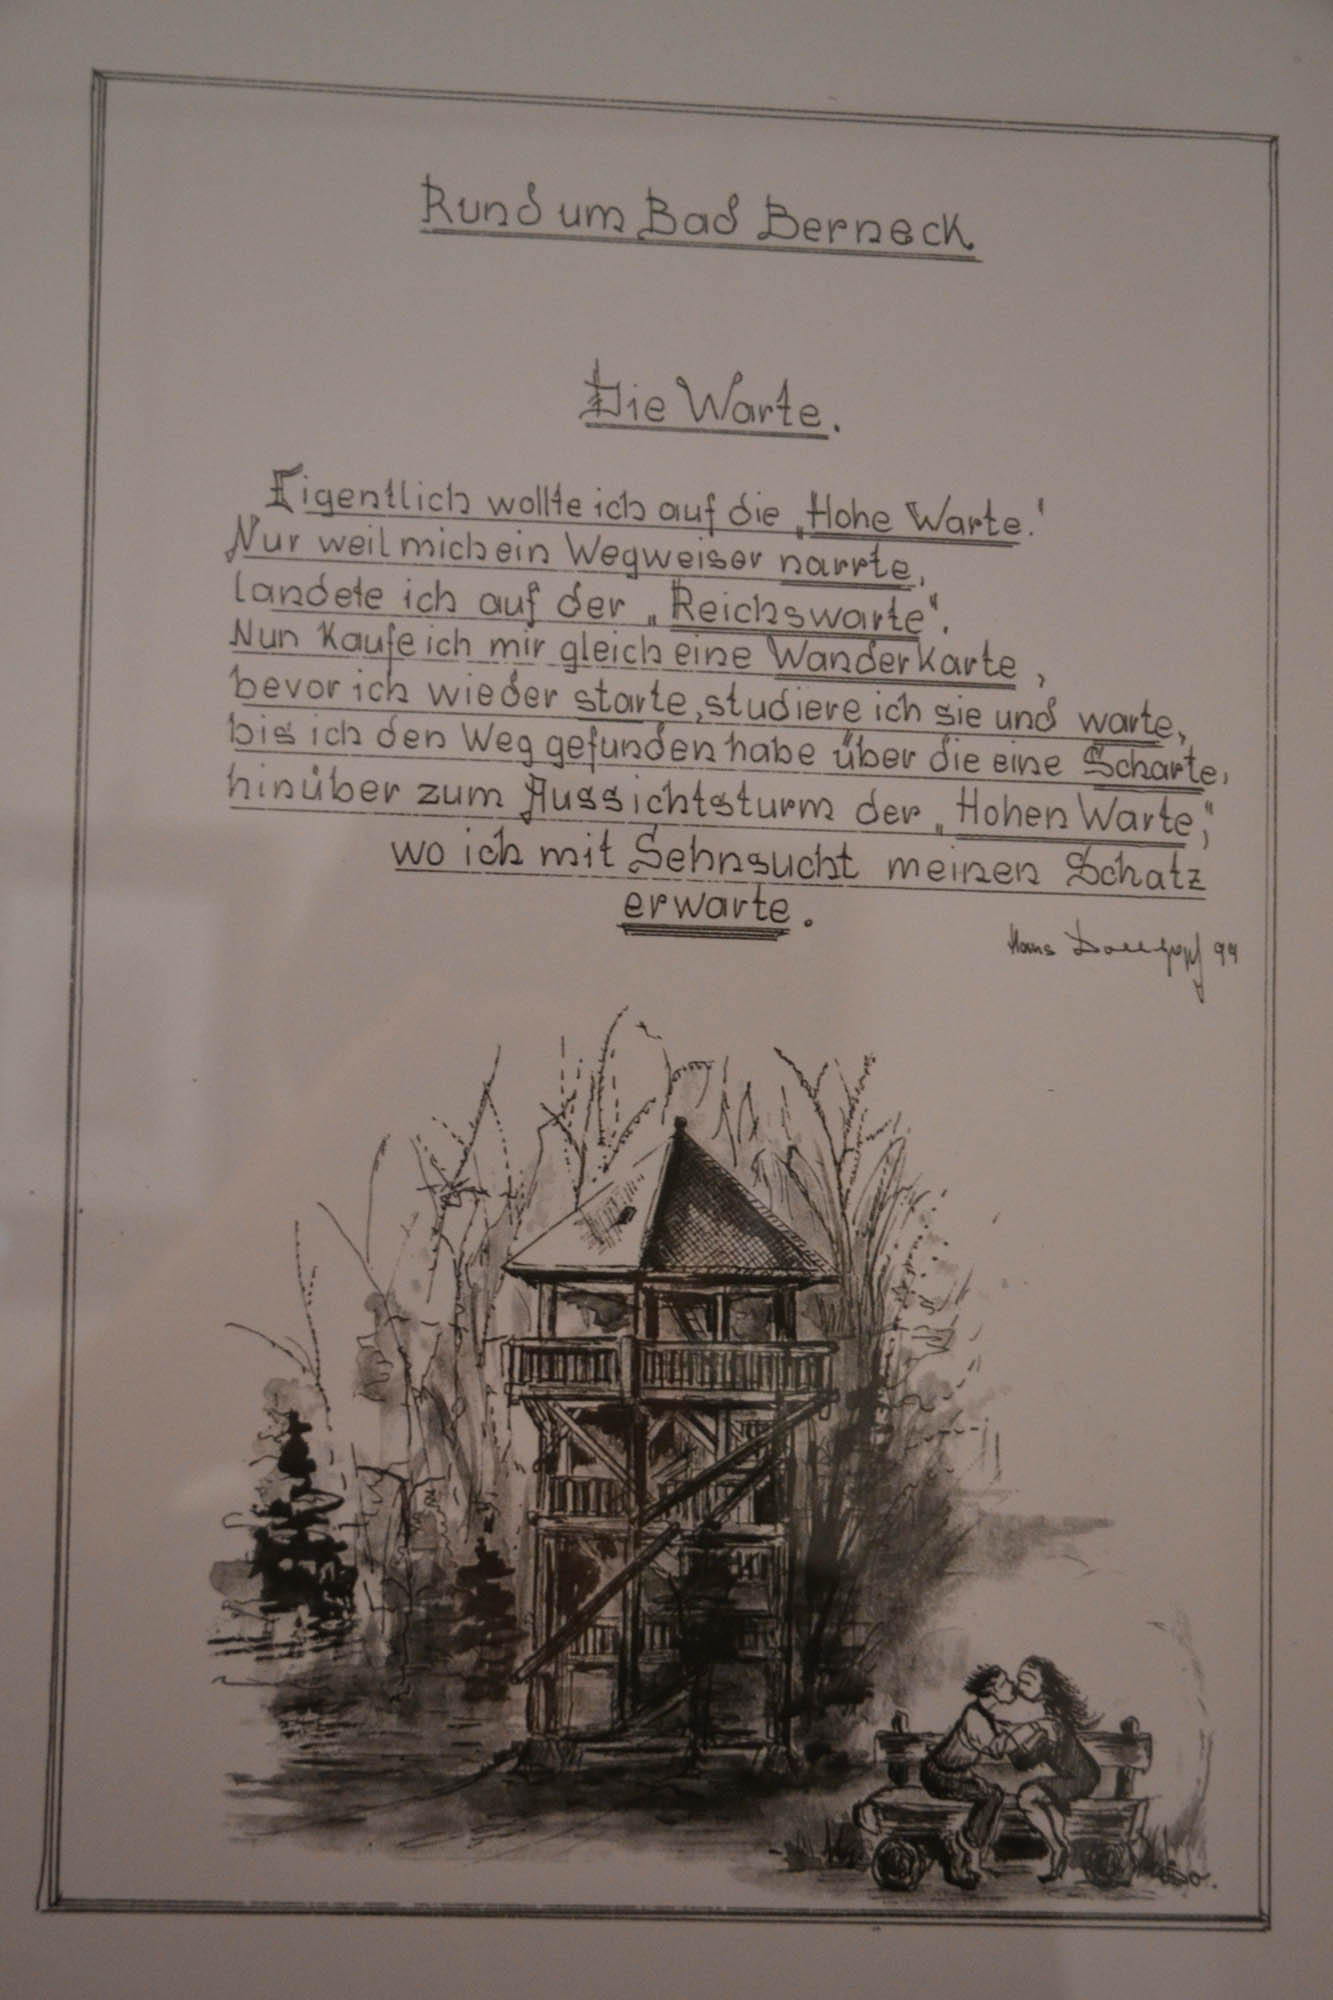 Rund um Bad Berneck
Die Warte.
Eigentlich wollte ich auf die „Hohe Warte.“
Nur weil mich ein Wegweiser narrte,
landete ich auf der „Reichswarte“.
Nun Kaufe ich mir gleich eine WanderKarte,
bevor ich wieder starte, studiere ich sie und warte,
bis ich den Weg gefunden habe über die eine Scharte,
hinüber zum Aussichtsturm der „Hohen Warte“,
wo ich mit Sehnsucht meinen Schatz
erwarte.
Hans